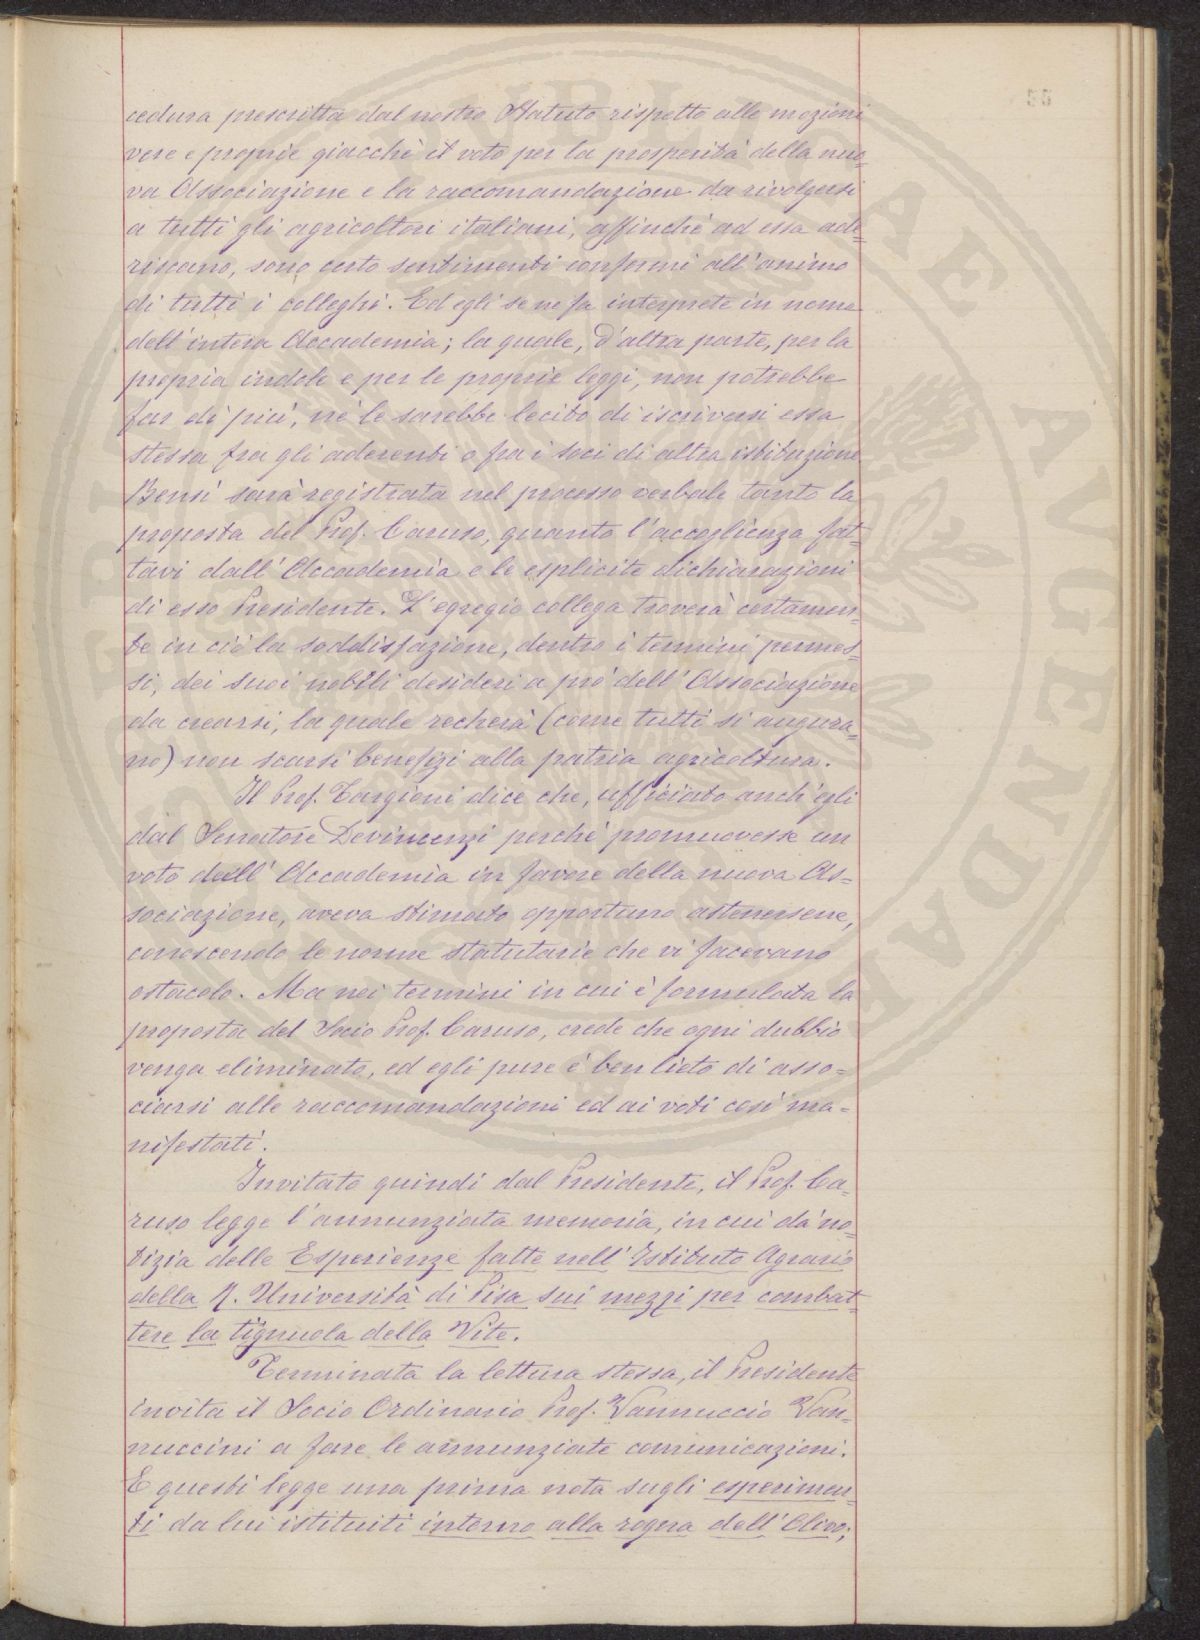 cedura prescritta dal nostro Statuto rispetto alle mozioni
vere e proprie giacchè il voto per la prosperità della nuo-
va Associazione e la raccomandazione da rivolgersi
a tutti gli agricoltori italiani, affinchè ad essa ade-
riscano, sono certo sentimenti conformi all'animo
di tutti i colleghi. Ed egli se ne fa interprete in nome
dell'intera Accademia; la quale, d'altra parte, per la
propria indole e per le proprie leggi, non potrebbe
far di più, nè le sarebbe lecito di iscriversi essa
stessa fra gli aderenti o fra i soci di altra istituzione
Bensì sarà registrata nel processo verbale tanto la
proposta del Prof. Caruso, quanto l'accoglienza fat-
tavi dall'Accademia e le esplicite dichiarazioni
di esso Presidente. L'egregio collega troverà certamen-
te in ciò la soddisfazione, dentro i termini permes-
si, dei suoi nobili desideri a prò dell'Associazione
da crearsi, la quale recherà (come tutti si augura-
no) non scarsi benefizi alla patria agricoltura.
Il Prof. Targioni dice che, ufficiato anch'egli
dal Senatore Devincenzi perchè promuovesse un
voto dell'Accademia in favore della nuova As=
sociazione, aveva stimato opportuno astenersene,
conoscendo le norme statutarie che vi facevano
ostacolo. Ma nei termini in cui è formulata la
proposta del Socio Prof. Caruso, crede che ogni dubbio
venga eliminato, ed egli pure è ben lieto di asso=
ciarsi alle raccomandazioni ed ai voti così ma=
nifestati.
Invitato quindi dal Presidente, il Prof. Ca-
ruso legge l'annunziata memoria, in cui dà no-
tizia delle Esperienze fatte nell'Istituto Agrario
della R. Università di Pisa sui mezzi per combat-
tere la tignuola della Vite.
Terminata la lettura stessa, il Presidente
invita il Socio Ordinario Prof. Vannuccio Van-
nuccini a fare le annunziate comunicazioni.
E questi legge una prima nota sugli esperimen-
ti da lui istituiti intorno alla rogna dell'Olivo;
PUBLICAE AUGENDAE